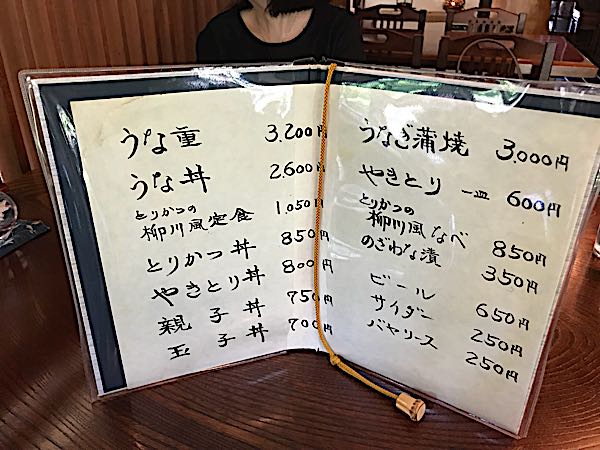 うな重 3,200円
うな丼 2,600円
とりかつの
柳川風定食 1,050円
とりかつ丼 850円
やきとり丼 800円
親子丼 750円
玉子丼 700円
うなぎ蒲焼 3,000円
やきとり 一皿 600円
とりかつの
柳川風なべ 850円
のざわな漬 350円
ビール 650円
サイダー 250円
バヤリース 250円